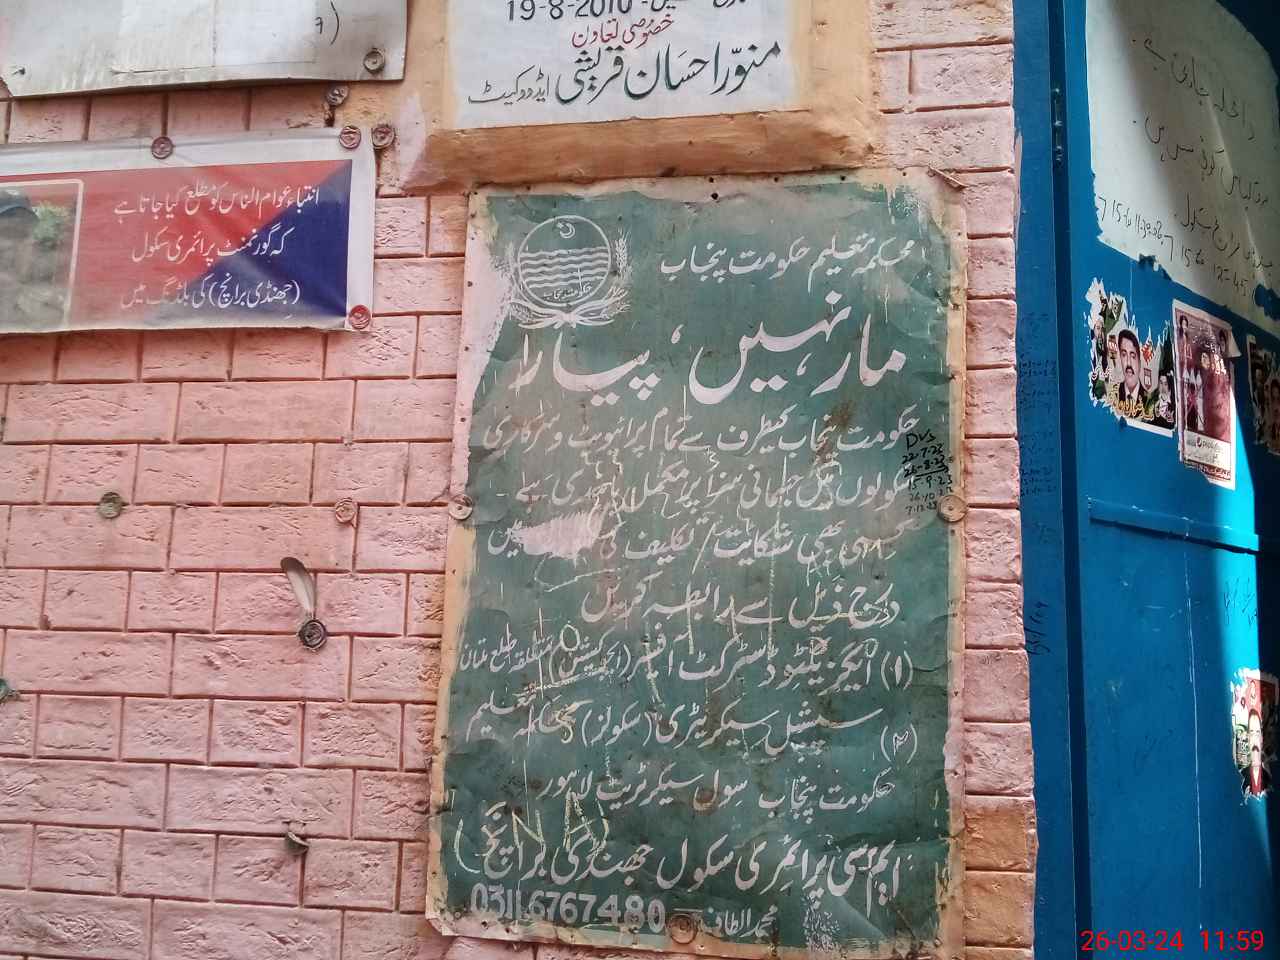 19-8-2010
خصوصی تعاون
منور احسان قریشی ایڈووکیٹ
انتباء عوام الناس کو مطلع کیا جاتا ہے
کہ گورنمنٹ پرائمری سکول
(جھنڈی برانچ) کی بلڈنگ میں
محکمہ تعلیم حکومت پنجاب
حکومت پنجاب
مار نہیں، پیار
حکومت پنجاب کیطرف سے تمام پرائیویٹ و سرکاری
سکولوں میں جسمانی سزا پر مکمل پابندی ہے۔
کسی بھی شکایت/تکلیف میں
درج ذیل سے رابطہ کریں
(۱) ایگزیکٹیو ڈسٹرکٹ آفیسر (ایجوکیشن) متعلقہ ضلع ملتان
(۲) سپیشل سیکریٹری (سکولز) محکمہ تعلیم
حکومت پنجاب سول سیکرٹریٹ لاہور
ایم سی پرائمری سکول جھنڈی برانچ
محمد الطاف 0311 6767480
DVs
22-7-23
26-8-23
15-9-23
26-10
7-12-23
داخلہ جاری ہے
26-03-24 11:59